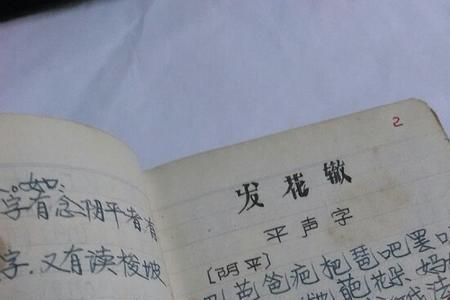 。如.
字有念阴平者有
字.又有读梭坡
2
发花辙
平声字
[阴平]
芭爸疤粑琶吧罢
葩 妈